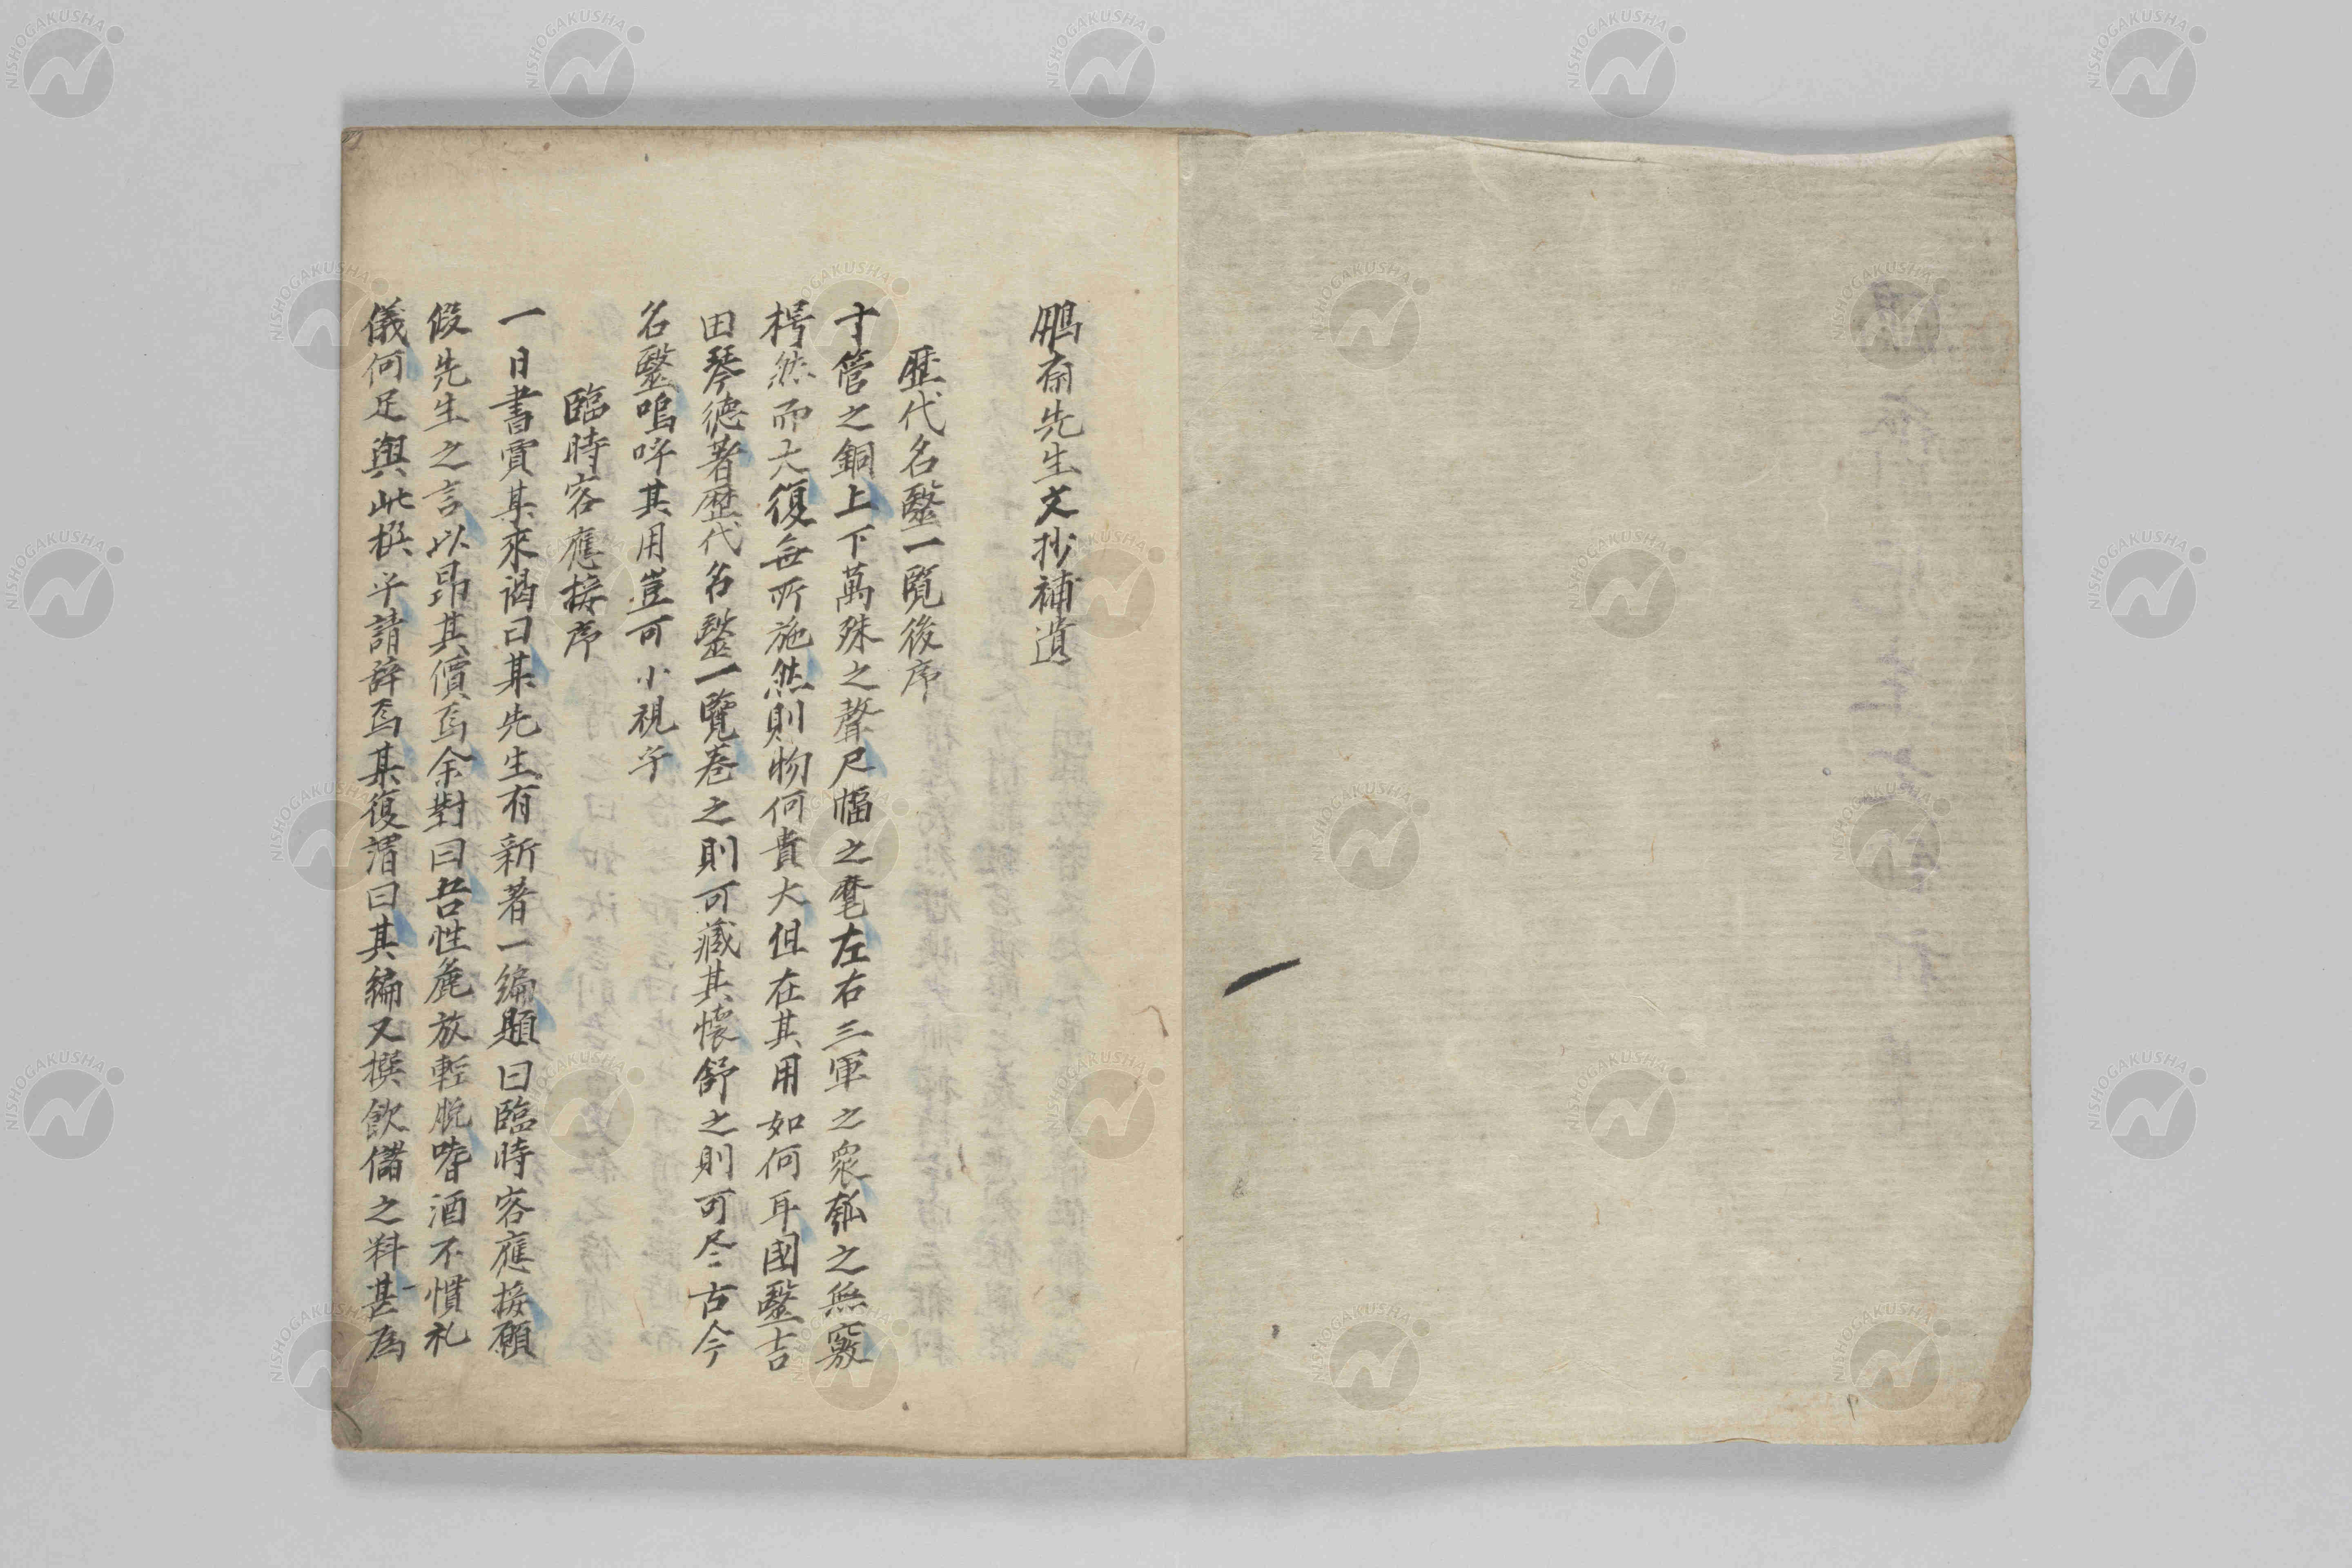 鵬斎先生文抄補遺
歴代名毉一覧後序
寸管之銅上下萬殊之聲尺幅之麾左右三軍之衆瓠之無竅
枵然而大復無所施然則物何貴大但在其用如何耳國毉吉
田琴徳著歴代名毉一覽卷之則可藏其懐舒之則可尽古今
名毉嗚呼其用豈可小視乎
臨時客應接序
一日書賈某來謁曰某先生有新著一編題曰臨時客應接願
假先生之言以昂其價焉余對曰吾性麁放輕脱嗜酒不慣礼
儀何足與此撰乎請辞焉某復謂曰其編又撰飲儲之料甚為
NISHOGAKUSHA